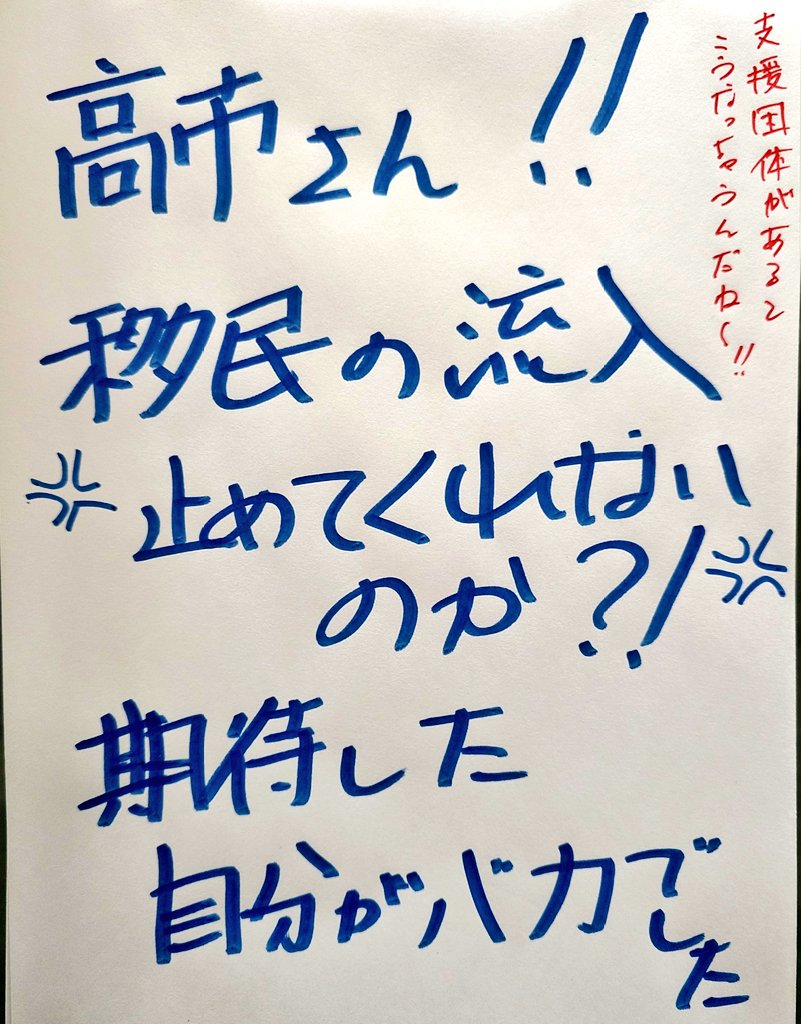 高市さん!!
移民の流入
止めてくれない
のか?!
期待した
自分がバカで
した
支援団体があると
こうなっちゃうんだね〜!!